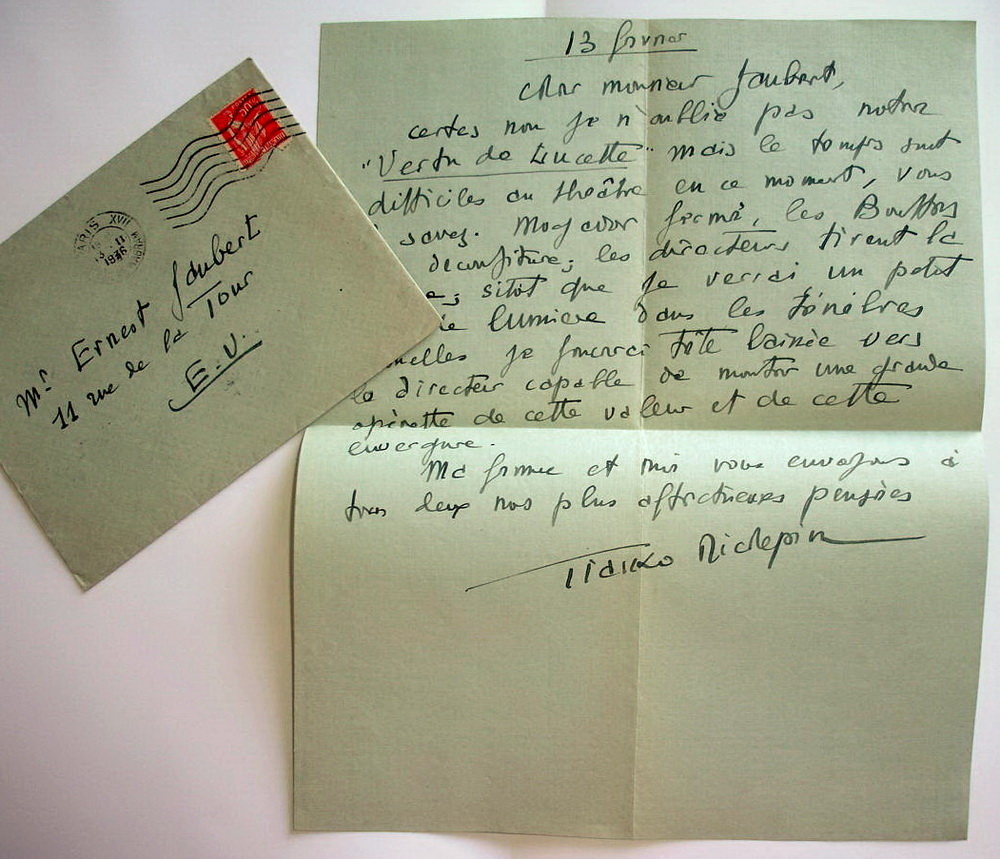 13 février
cher monsieur Jaubert,
certes non je n'oublie pas notre
"Vertu de Lucette" mais le temps sont
difficiles au théâtre en ce moment, vous
savez. Mogador fermé, les Bouffes
déconfiture; les directeurs tirent la
e; sitôt que je verrai un petit
de lumière dans les ténèbres
uelles je foncerai tête baissée vers
le directeur capable de monter une grande
opérette de cette valeur et de cette
envergure.
Ma femme et moi vous envoyons à
tous deux nos plus affectueuses pensées
Tiarko Richepin
PARIS XVII
Mr Ernest Jaubert
11 rue de la Tour
E.V.